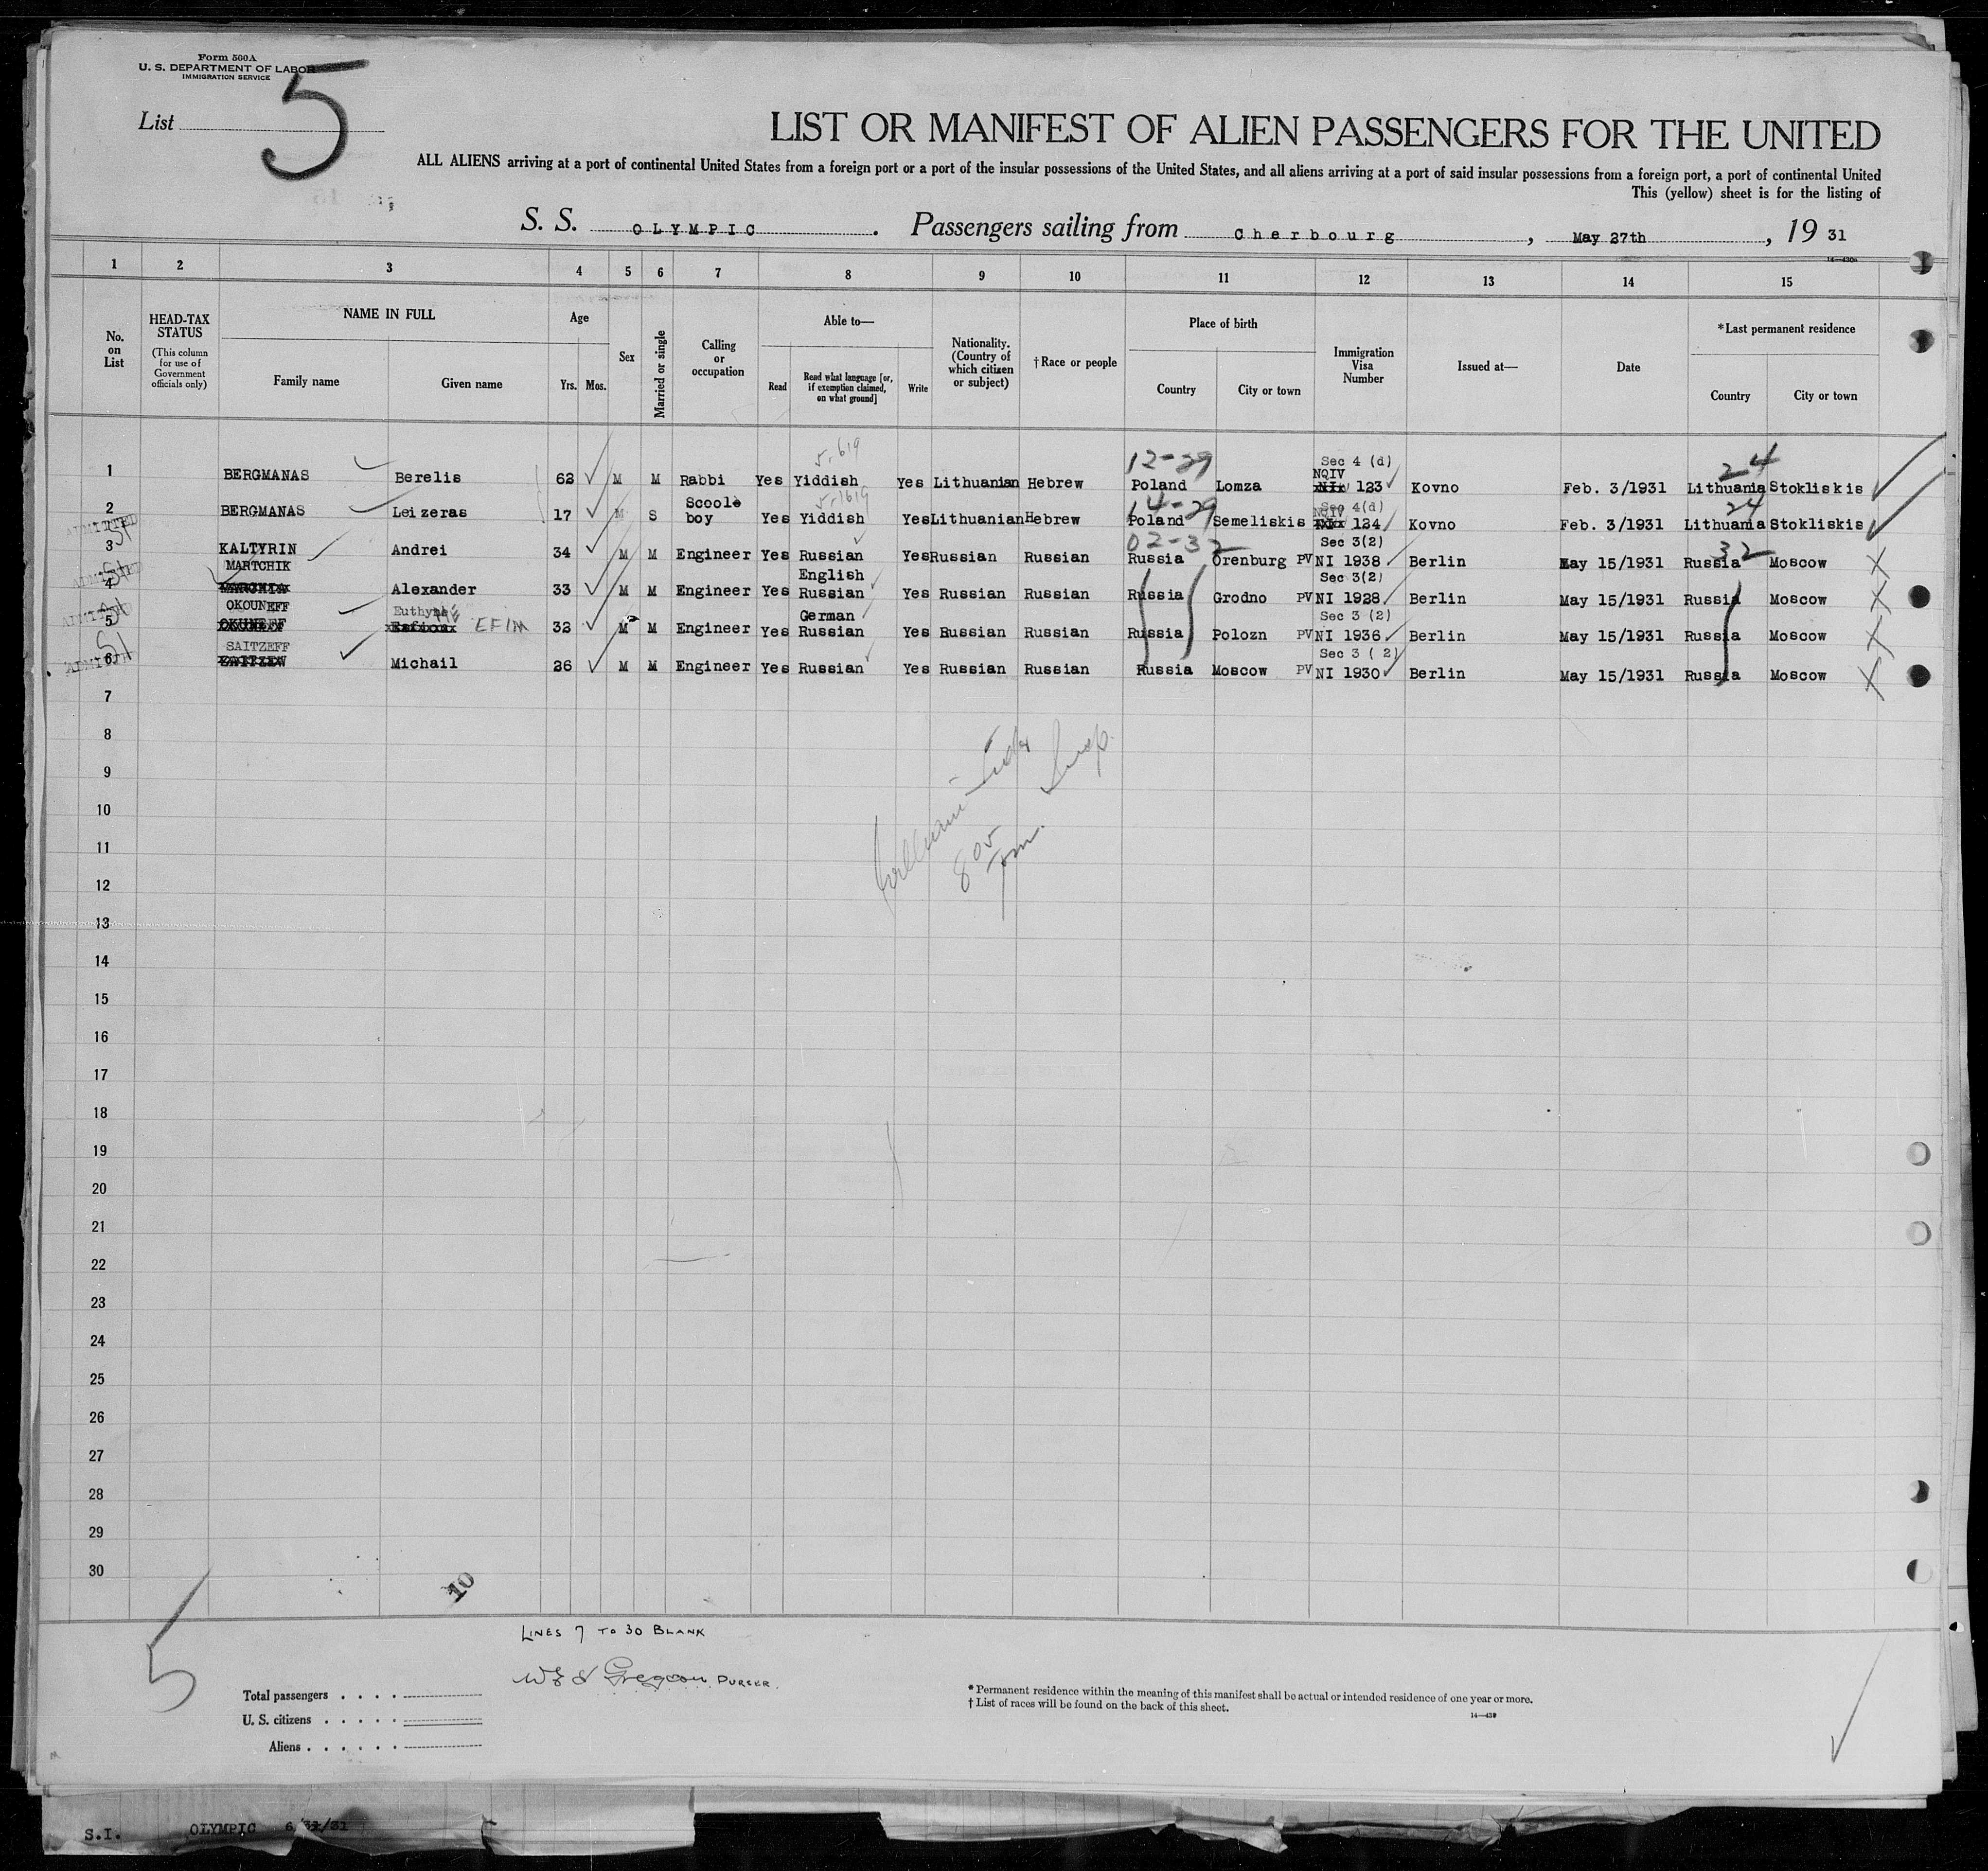 Form 500A
U. S. DEPARTMENT OF LABOR
IMMIGRATION SERVICE
List 5
LIST OR MANIFEST OF ALIEN PASSENGERS FOR THE UNITED
ALL ALIENS arriving at a port of continental United States from a foreign port or a port of the insular possessions of the United States, and all aliens arriving at a port of said insular possessions from a foreign port, a port of continental United
This (yellow) sheet is for the listing of
S. S. OLYMPIC. Passengers sailing from Cherbourg, May 27th, 19 31
14—430a
1 2 3 4 5 6 7 8 9 10 11 12 13 14 15
No. on List
HEAD-TAX STATUS (This column for use of Government officials only)
NAME IN FULL
Family name Given name
Age
Yrs. Mos.
Sex
Married or single
Calling or occupation
Able to—
Read Read what language [or, if exemption claimed, on what ground] Write
Nationality. (Country of which citizen or subject)
† Race or people
Place of birth
Country City or town
Immigration Visa Number
Issued at—
Date
*Last permanent residence
Country City or town
5-619 12-29 Sec 4 (d) 24
NQIV
1 BERGMANAS Berelis 62 M M Rabbi Yes Yiddish Yes Lithuanian Hebrew Poland Lomza 123 Kovno Feb. 3/1931 Lithuania Stokliskis
5-1619 14-29 Sec 4(d) 24
NQIV
2 BERGMANAS Leizeras 17 M S Scoole boy Yes Yiddish Yes Lithuanian Hebrew Poland Semeliskis 124 Kovno Feb. 3/1931 Lithuania Stokliskis
ADMITTED SI
02-32 Sec 3(2) 32
3 KALTYRIN Andrei 34 M M Engineer Yes Russian Yes Russian Russian Russia Orenburg PV NI 1938 Berlin May 15/1931 Russia Moscow
ADMITTED SI
MARTCHIK English Sec 3(2)
4 Alexander 33 M M Engineer Yes Russian Yes Russian Russian Russia Grodno PV NI 1928 Berlin May 15/1931 Russia Moscow
ADMITTED SI
OKOUNEFF German Sec 3 (2)
5 OKUNEFF EFIM 32 M M Engineer Yes Russian Yes Russian Russian Russia Polozn PV NI 1936 Berlin May 15/1931 Russia Moscow
ADMITTED SI
SAITZEFF Sec 3 ( 2)
6 Michail 26 M M Engineer Yes Russian Yes Russian Russian Russia Moscow PV NI 1930 Berlin May 15/1931 Russia Moscow
7
8
9
10
11
12
13
14
15
16
17
18
19
20
21
22
23
24
25
26
27
28
29
30
Insp.
8 05 pm.
10
LINES 7 TO 30 BLANK
PURSER.
5
Total passengers . . . .
U. S. citizens . . . . .
Aliens . . . . . .
* Permanent residence within the meaning of this manifest shall be actual or intended residence of one year or more.
† List of races will be found on the back of this sheet.
14—430
S.I. OLYMPIC